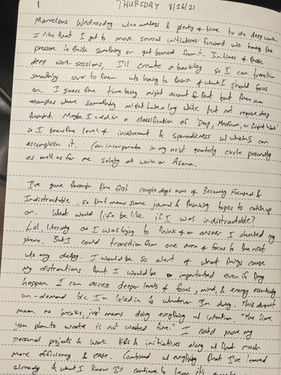 1 THURSDAY 8/26/21
Marvelous Wednesday w/no meetings & plenty of time to do deep work.
I like that I get to move several initiatives forward w/o having the
pressure to finish something or get burned from it. In lieu of those
deep work sessions, I'll create a backlog so I can transition
smoothly over to them w/o having to think of what I should focus
on. I guess the time boxing might account for that but there are
examples where something might take a long while but not require deep
thought. Maybe I add in a classification of Deep, Medium, or Light
so I know the level of involvement & spontaneous w/which I can
accomplish it. Can incorporate in my next quarterly cycle personally
as well as for me solely at work on Asana.
I've gone through the first couple days now of becoming Focused &
Indistractable, so that means some journal & thinking topics to catch up
on. What would life be like if I was indistractable?
Lol, literally as I was trying to think of an answer I checked my
phone. But I could transition from one area of focus to the next
w/o any delay. I would be so alert of what things cause
my distractions that I would be unperturbed even if they
happen. I can access deeper levels of focus, mind & energy essentially
on-demand bc I'm locked in to whatever I'm doing. This doesn't
mean no breaks, just means doing everything w/ intention. "The time
you plan to waste is not wasted time." I could move my
personal projects & work KRs & initiatives along w/ that much
more efficiency & ease. Combined w/ everything that I've learned
already & what I know I'll continue to learn, it's